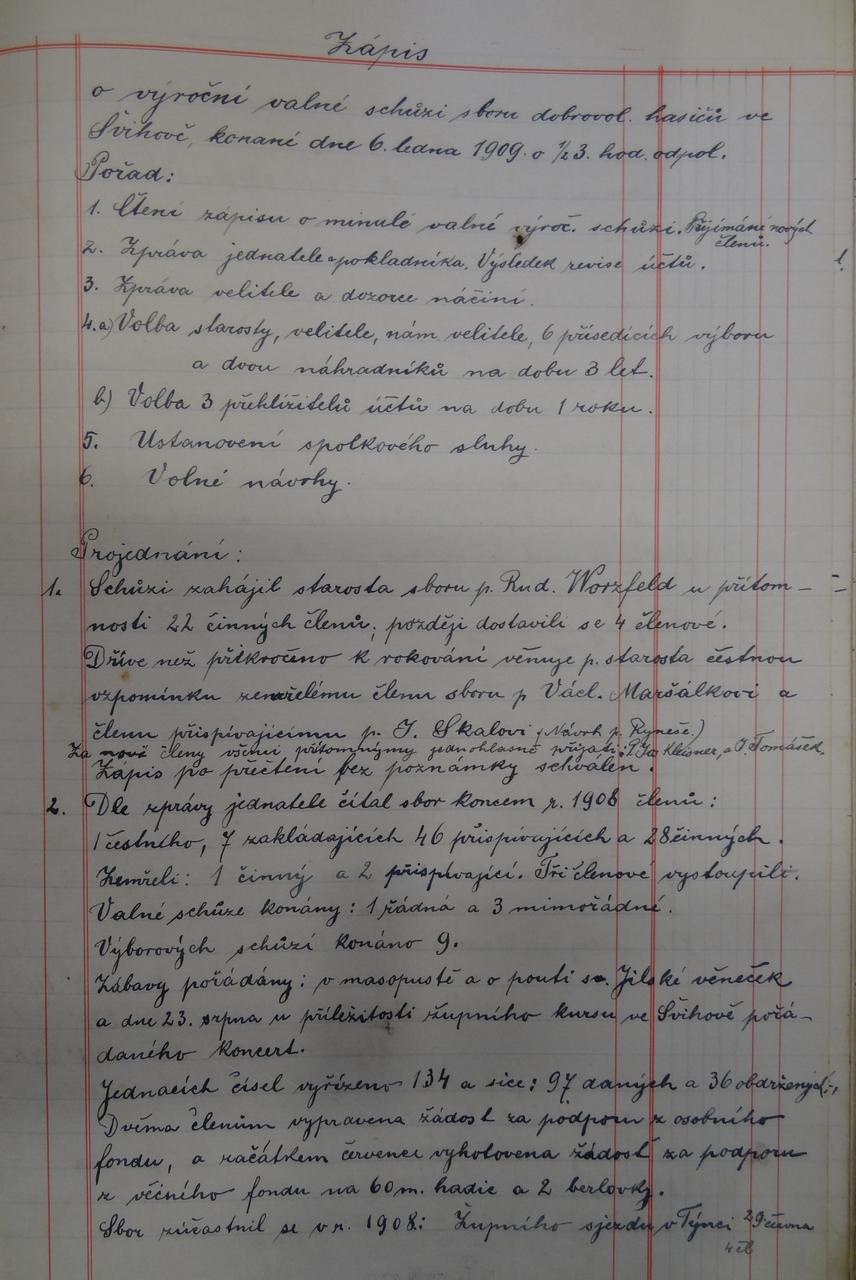 Zápis
o výroční valné schůzi sboru dobrovol. hasičů ve
Švihově, konané dne 6. ledna 1909. o 1/2 3. hod. odpol.
Pořad:
1. Čtení zápisu o minulé valné výroč. schůzi. Přijímání nových
členů.
2. Zpráva jednatele a pokladníka. Výsledek revise účtů.
3. Zpráva velitele a dozorce náčiní.
4. a) Volba starosty, velitele, nám. velitele, 6 přísedících výboru
a dvou náhradníků na dobu 3 let.
b) Volba 3 přehlížitelů účtů na dobu 1 roku.
5. Ustanovení spolkového sluhy.
6. Volné návrhy.
Projednání:
1. Schůzi zahájil starosta sboru p. Rud. Worzfeld u přítom-
nosti 22 činných členů; později dostavili se 4 členové.
Dříve než přikročeno k rokování věnuje p. starosta čestnou
vzpomínku zemřelému členu sboru p Václ. Maršálkovi a
členu přispívajícímu p. J. Skalovi (Návrh p. Ryneše.)
Za nové členy všemi přítomnými jednohlasně přijati: P. Jos. Kleisner, a J. Tomášek.
Zápis po přečtení bez poznámky schválen.
2. Dle zprávy jednatele čítal sbor koncem r. 1908 členů:
1 čestního, 7 zakládajících 46 přispívajících a 28 činných.
Zemřeli: 1 činný a 2 přispívající. Tři členové vystoupili.
Valné schůze konány: 1 řádná a 3 mimořádné.
Výborových schůzí konáno 9.
Zábavy pořádány: v masopustě a o pouti sv. Jilské věneček
a dne 23. srpna u příležitosti župního kursu ve Švihově pořá-
daného koncert.
Jednacích čísel vyřízeno 134 a sice: 97 daných a 36 obdržených
Dvěma členům vypravena žádost za podporu z osobního
fondu, a začátkem července vyhotovena žádost za podporu
z věčního fondu na 60 m. hadic a 2 berlovky.
Sbor zúčastnil se v r. 1908: Župního sjezdu v Týnci 29 června